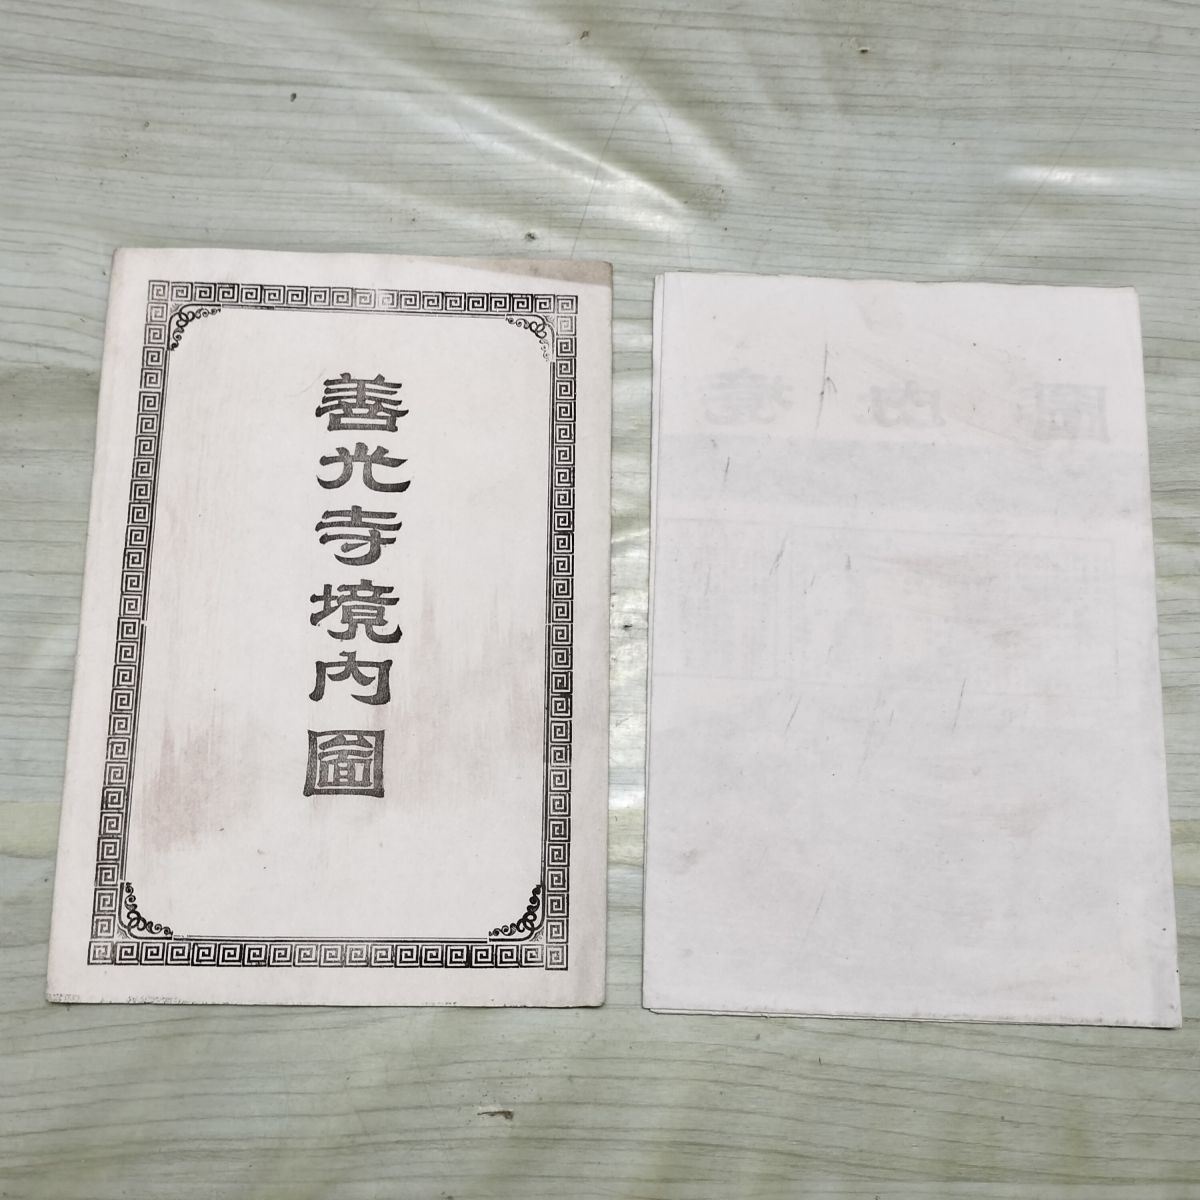 善光寺境内圖